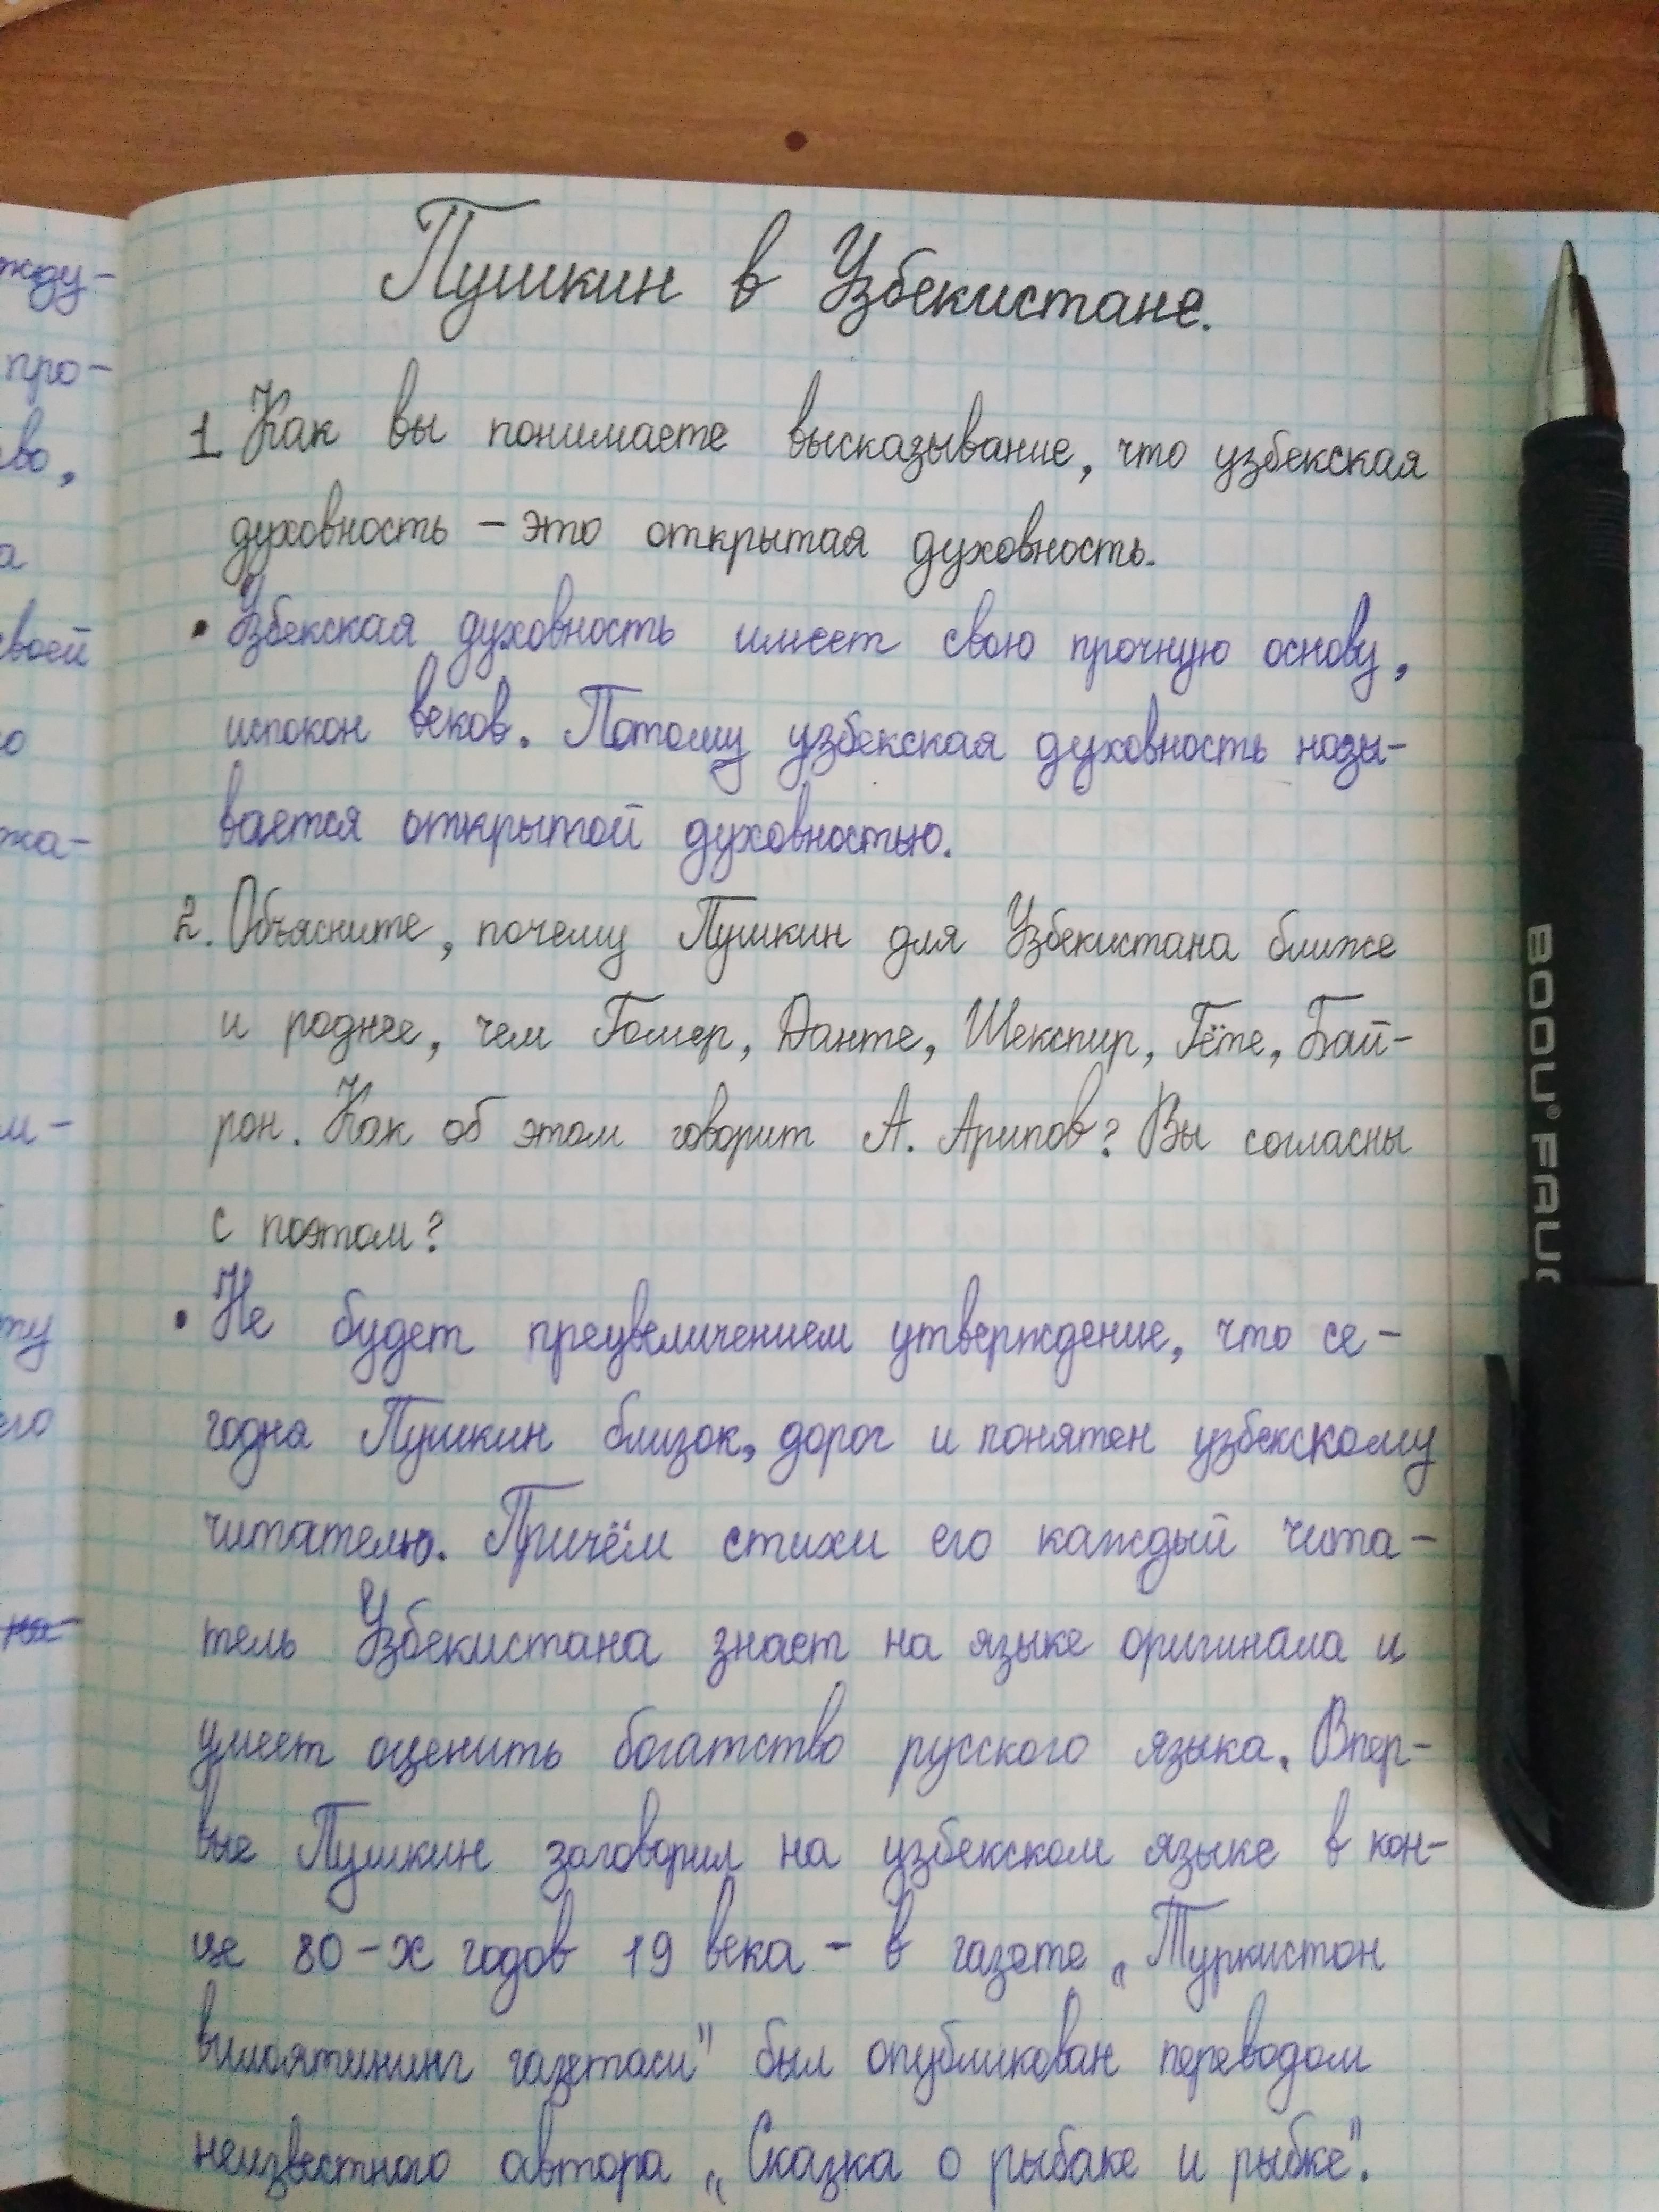 Пушкин в Узбекистане.
1 Как вы понимаете высказывание, что узбекская
духовность – это открытая духовность.
• Узбекская духовность имеет свою прочную основу,
испокон веков. Потому узбекская духовность назы-
вается открытой духовностью.
2. Объясните, почему Пушкин для Узбекистана ближе
и роднее, чем Гомер, Данте, Шекспир, Гёте, Бай-
рон. Как об этом говорит А. Арипов? Вы согласны
с поэтом?
• Не будет преувеличением утверждение, что се-
годня Пушкин близок, дорог и понятен узбекскому
читателю. Причём стихи его каждый чита-
тель Узбекистана знает на языке оригинала и
умеет оценить богатство русского языка. Впер-
вые Пушкин заговорил на узбекском языке в кон-
це 80-х годов 19 века – в газете „Туркистон
вилоятининг газетаси" был опубликован переводом
неизвестного автора „Сказка о рыбаке и рыбке".
жду-
про-
во,
а
своей
о
жа-
м-
ту
его
BOOU® FAUC